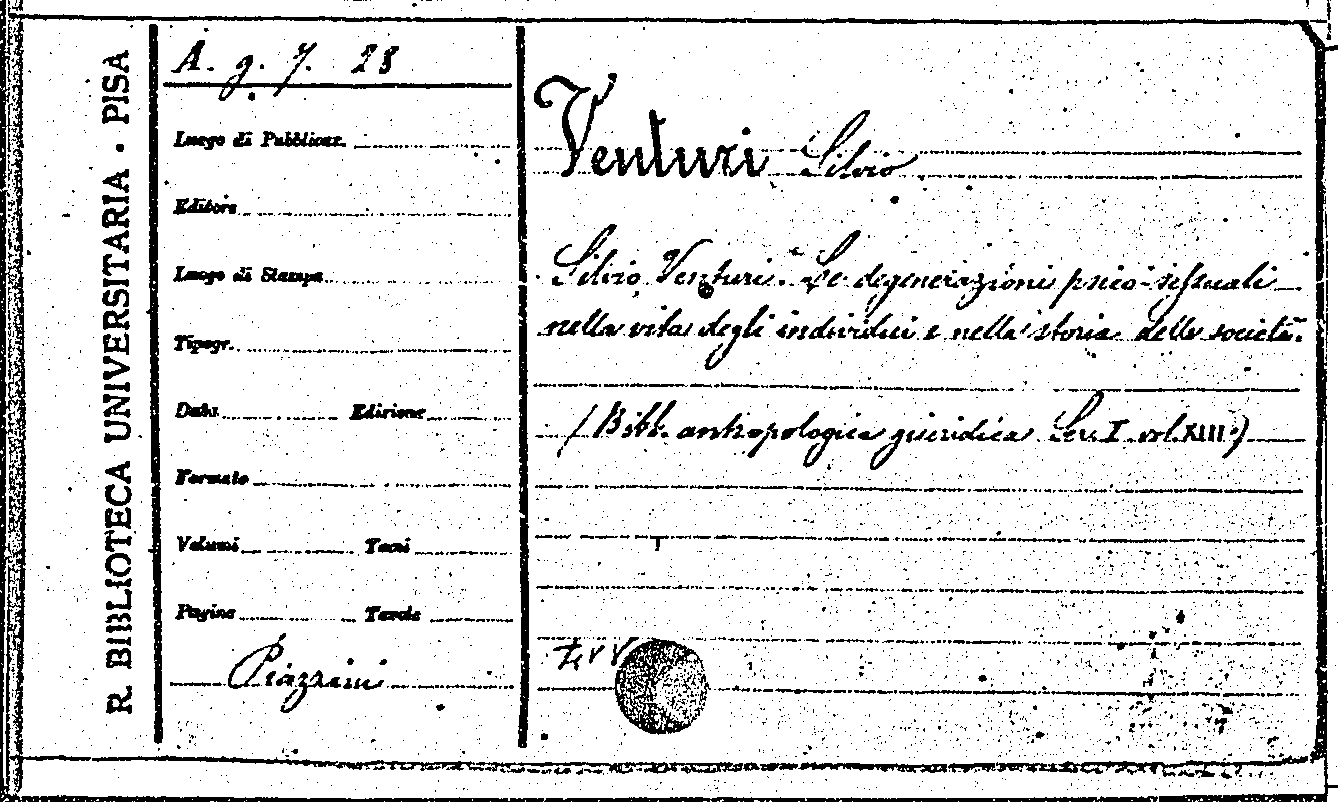 R. BIBLIOTECA UNIVERSITARIA · PISA
A. g. 7. 28
Luogo di Pubblicaz.
Editore
Luogo di Stampa
Tipogr.
Data Edizione
Formato
Volumi Tomi
Pagine Tavole
Piazzini
Venturi Silvio
Silvio Venturi. Le degenerazioni psico-sessuali
nella vita degli individui e nella storia delle società.
(Bibl. antropologica giuridica Ser. I vol. XIII.)